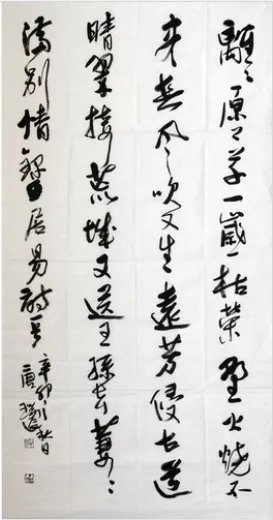 離〻原上草一歲一枯榮野火燒不
尽春風吹又生遠芳侵古道
晴翠接荒城又送王孫去萋〻
滿別情錄白居易詩
辛卯秋日